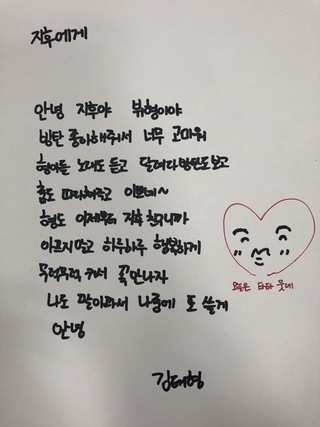 지후에게
안녕 지후야 뷔형이야
방탄 좋아해줘서 너무 고마워
형아들 노래도 듣고 달려라방탄도보고
춤도 따라해주고 이쁘네~
형도 이제부터 지후 친구니까
아프지말고 하루하루 행복하게
무럭무럭 커서 꼭 만나자
나도 팔아파서 나중에 또 쓸게
안녕
오늘은 타타 웃네
김태형